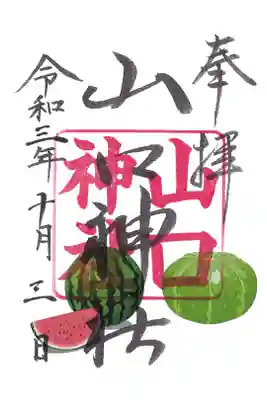 奉拝
山口神社
山口神社
令和三年十月三日